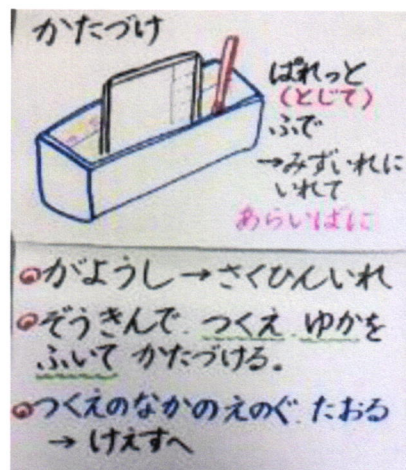 かたづけ
ぱれっと
(とじて)
ふで
→みずいれに
いれて
あらいばに
がようし→さくひんいれ
ぞうきんで、つくえ、ゆかを
ふいて かたづける。
つくえのなかのえのぐ、たおる
→ けえすへ